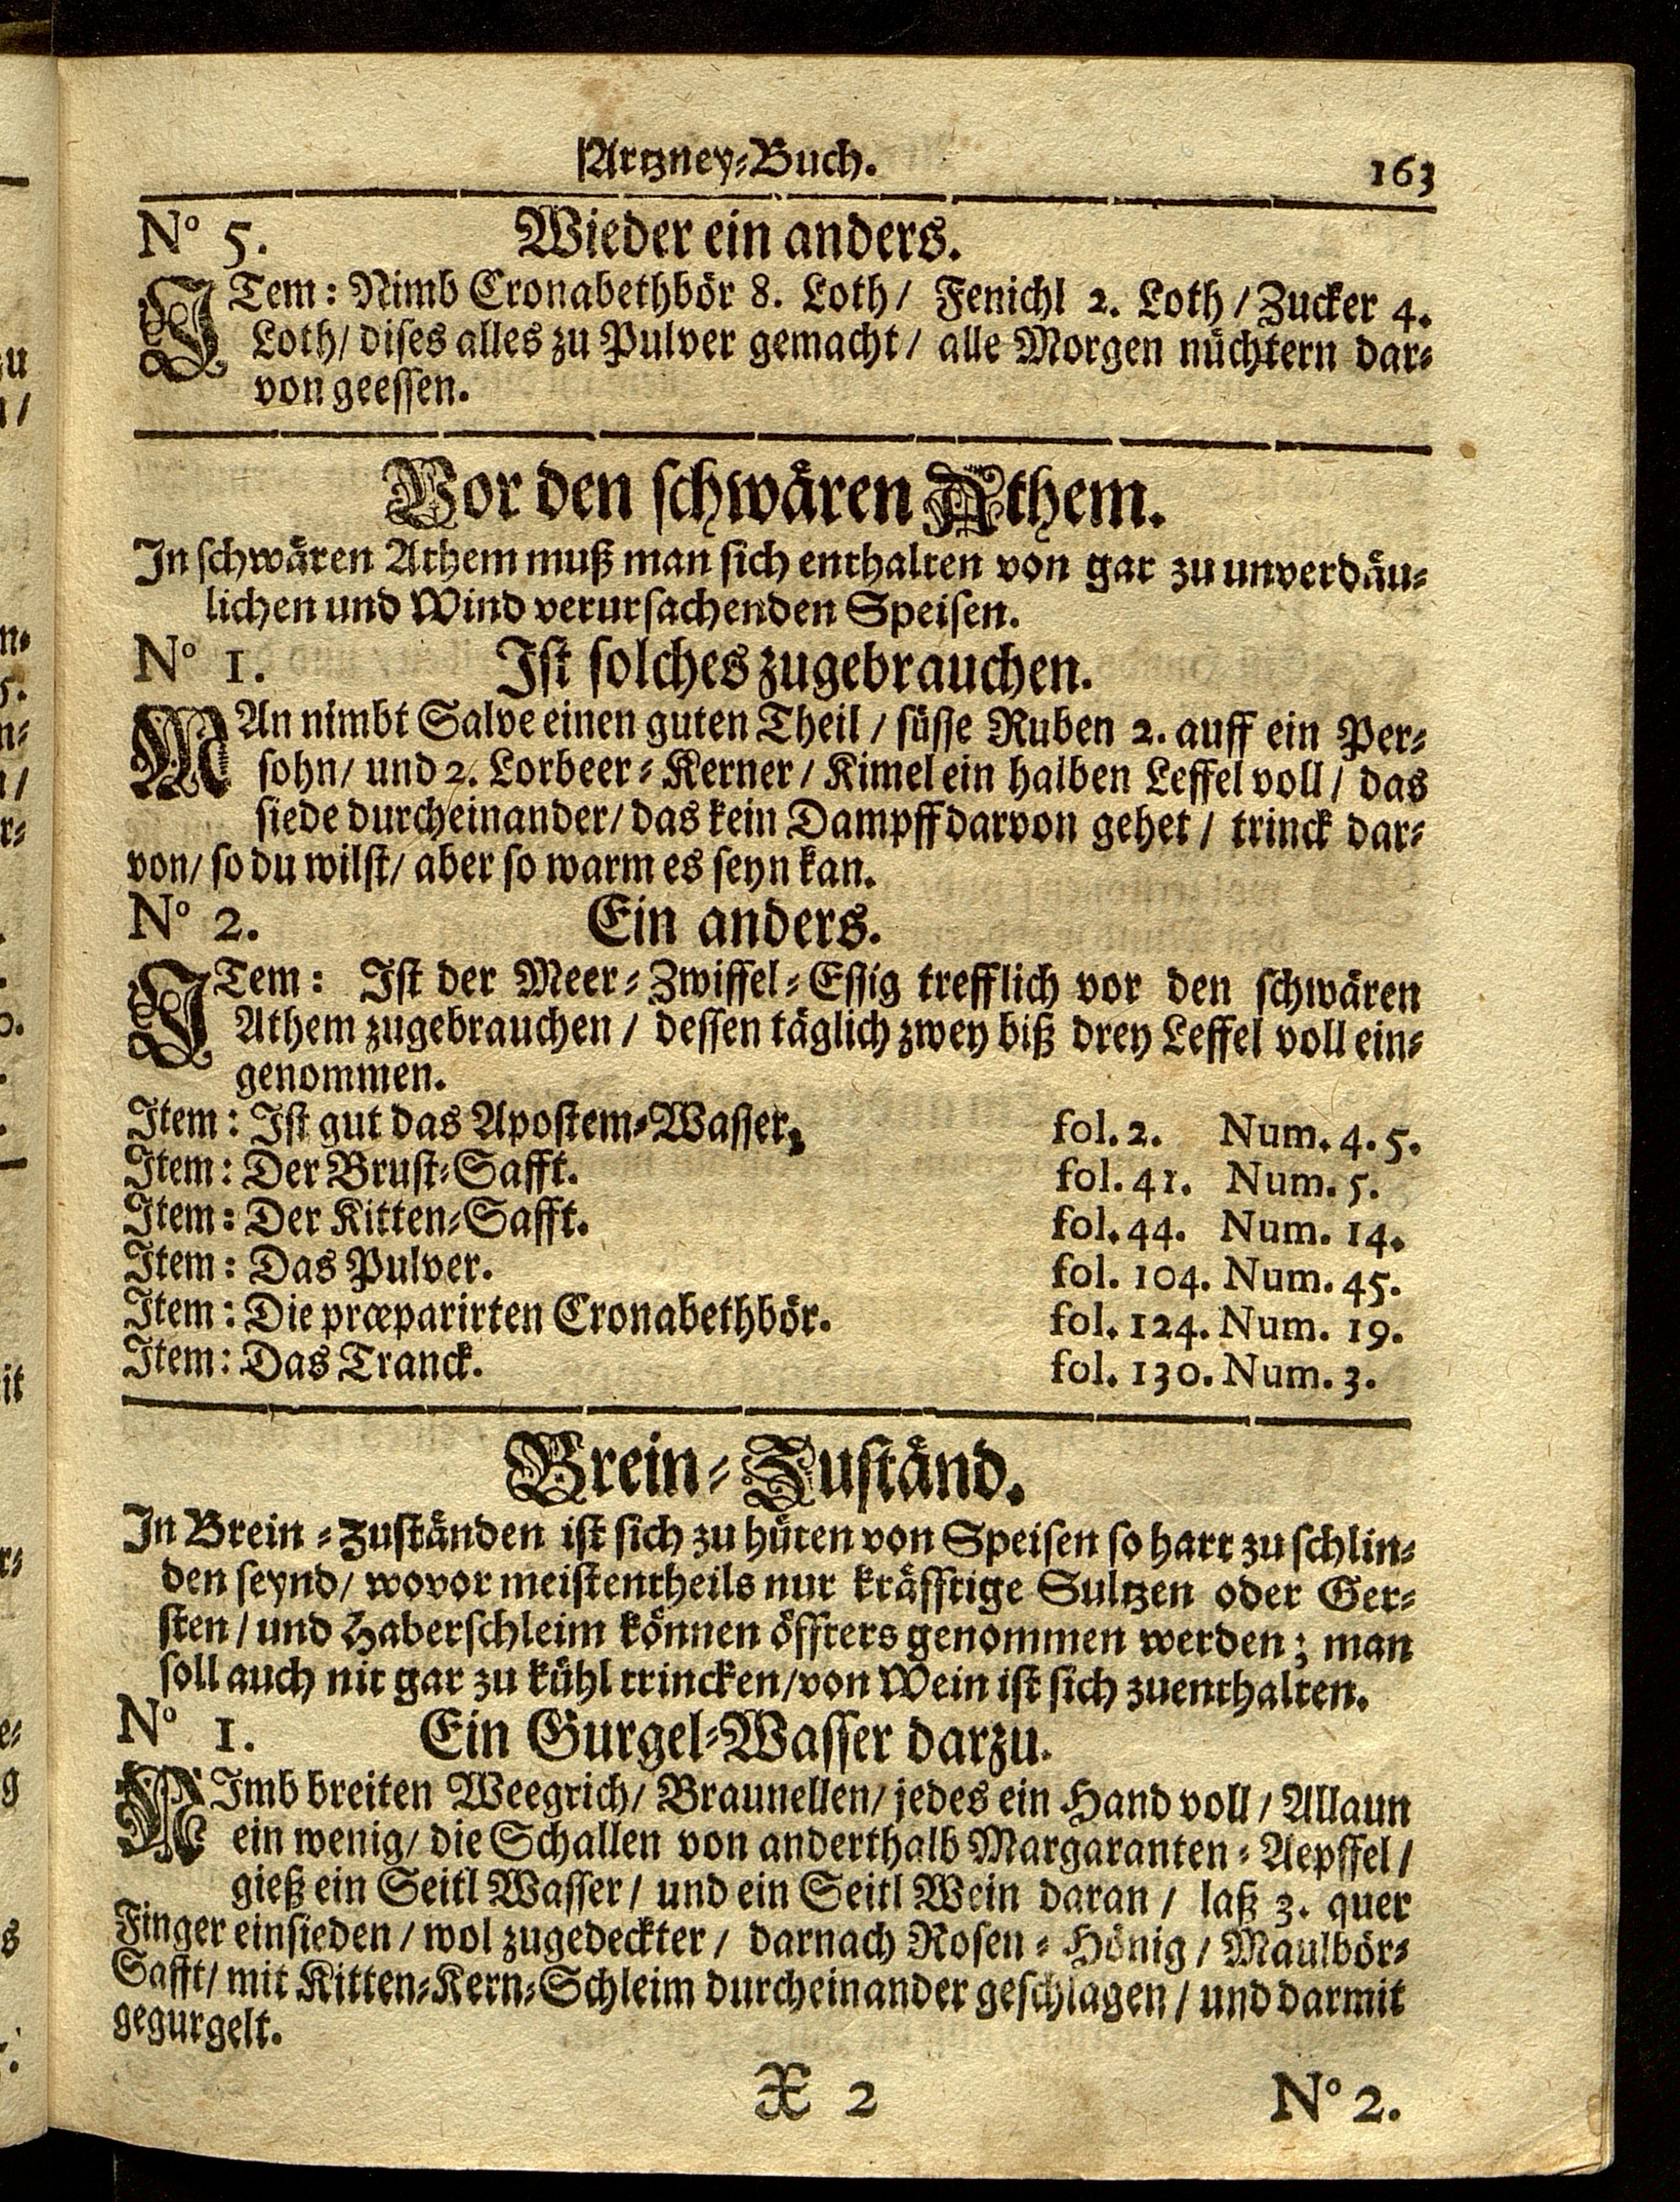 Artzney-Buch. 163
No 5. Wieder ein anders.
ITem: Nimb Cronabethbör 8. Loth/ Fenichl 2. Loth/ Zucker 4.
Loth/ dises alles zu Pulver gemacht/ alle Morgen nüchtern dar-
von geessen.
Vor den schwären Athem.
In schwären Athem muß man sich enthalten von gar zu unverdäu-
lichen und Wind verursachenden Speisen.
No 1. Ist solches zugebrauchen.
MAn nimbt Salve einen guten Theil / süsse Ruben 2. auff ein Per-
sohn/ und 2. Lorbeer-Kerner / Kimel ein halben Leffel voll / das
siede durcheinander/ das kein Dampff darvon gehet / trinck dar-
von/ so du wilst/ aber so warm es seyn kan.
No 2. Ein anders.
ITem: Ist der Meer-Zwiffel-Essig trefflich vor den schwären
Athem zugebrauchen / dessen täglich zwey biß drey Leffel voll ein-
genommen.
Item: Ist gut das Apostem-Wasser, fol. 2. Num. 4. 5.
Item: Der Brust-Safft. fol. 41. Num. 5.
Item: Der Kitten-Safft. fol. 44. Num. 14.
Item: Das Pulver. fol. 104. Num. 45.
Item: Die præparirten Cronabethbör. fol. 124. Num. 19.
Item: Das Tranck. fol. 130. Num. 3.
Brein-Zuständ.
In Brein-Zuständen ist sich zu hüten von Speisen so hart zu schlin-
den seynd/ wovor meistentheils nur kräfftige Sultzen oder Ger-
sten / und Haberschleim können öffters genommen werden; man
soll auch nit gar zu kühl trincken/ von Wein ist sich zuenthalten.
No 1. Ein Gurgel-Wasser darzu.
NImb breiten Weegrich/ Braunellen/ jedes ein Hand voll / Allaun
ein wenig/ die Schallen von anderthalb Margaranten-Aepffel /
gieß ein Seitl Wasser / und ein Seitl Wein daran / laß 3. quer
Finger einsieden / wol zugedeckter / darnach Rosen-Hönig / Maulbör-
Safft/ mit Kitten-Kern-Schleim durcheinander geschlagen / und darmit
gegurgelt.
X 2 No 2.